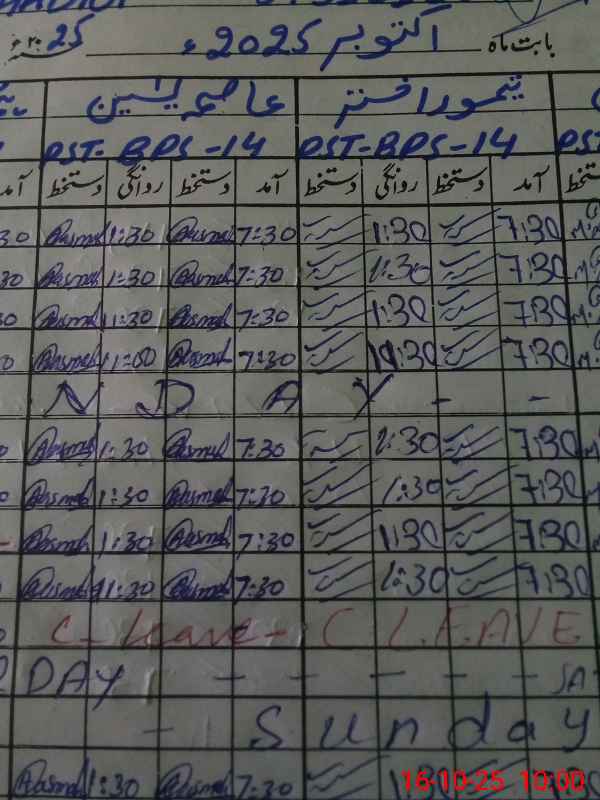 بابت ماہ اکتوبر 2025ء ۲۰ 25ء
تیمور اختر عاصمہ یٰسین
PST-BPS-14 PST-BPS-14 PST
آمد دستخط روانگی دستخط آمد دستخط روانگی دستخط آمد
30 Aasma 1:30 Aasma 7:30 1:30 7:30
30 Aasma 1:30 Aasma 7:30 1:30 7:30
30 Aasma 11:30 Aasma 7:30 1:30 7:30
Aasma 11:00 Aasma 7:30 11:30 7:30
N D A Y - -
Aasma 1:30 Aasma 7:30 1:30 7:30
Aasma 1:30 Aasma 7:30 1:30 7:30
Aasma 1:30 Aasma 7:30 1:30 7:30
Aasma 11:30 Aasma 7:30 1:30 7:30
C- Leave - C LEAVE
DAY - - - - - - SA
- Sunday
Aasma 1:30 Aasma 7:30
16-10-25 10:00